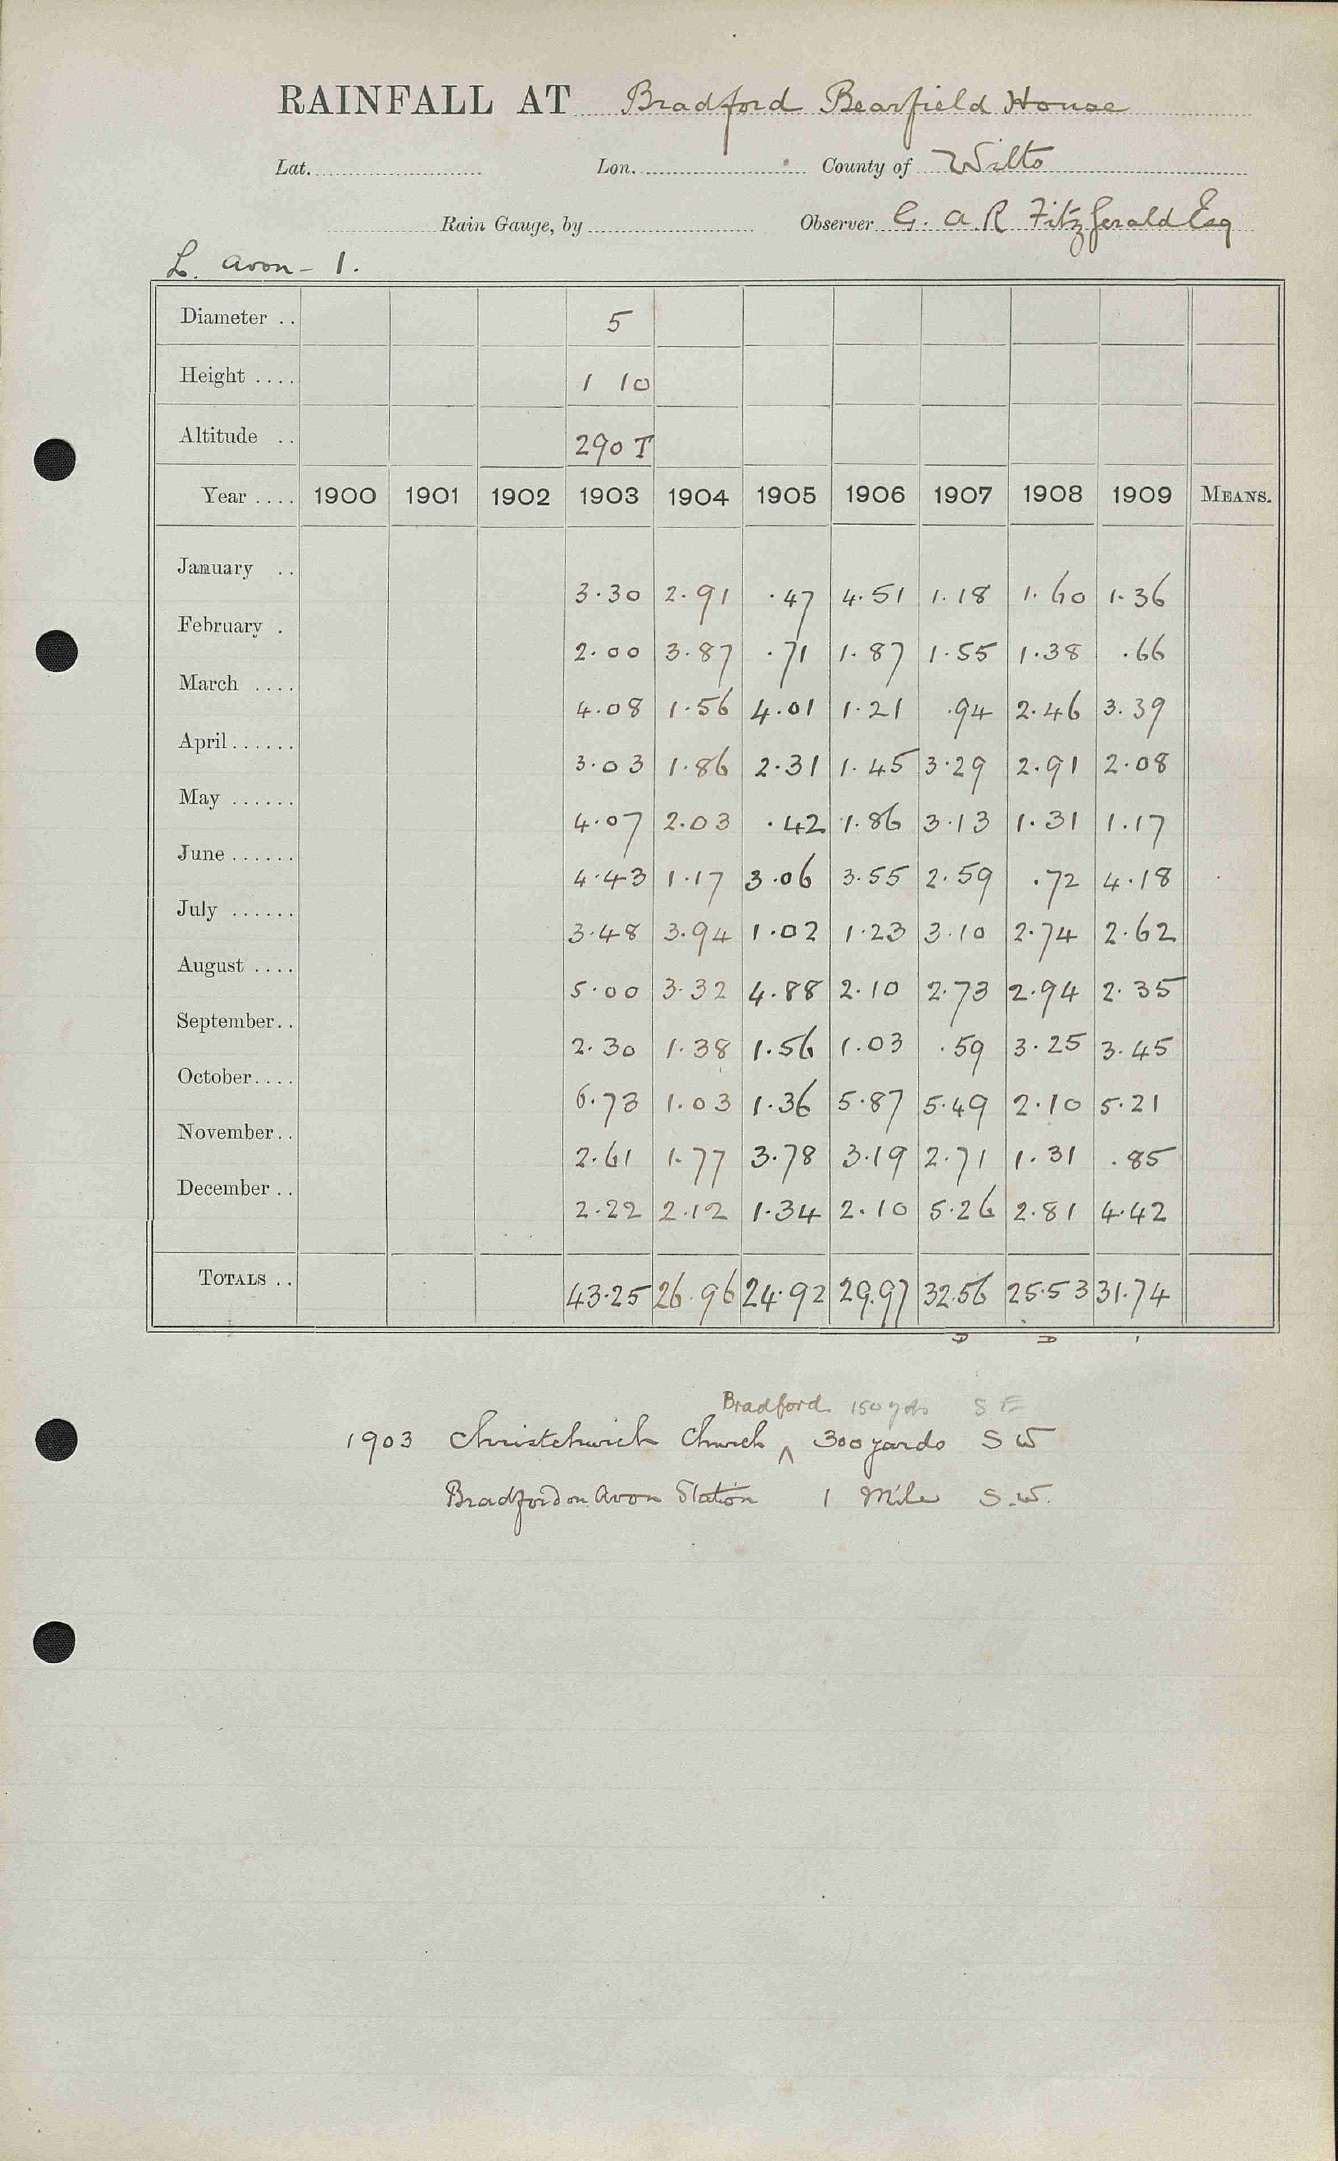 RAINFALL AT Bradford Bearfield House
Lat. Lon. County of Wilts
Rain Gauge, by Observer G. A. R Fitzgerald Esq
L. Avon - 1.
Diameter .. 5
Height .... 1 10
Altitude .. 290 T
Year .... 1900 1901 1902 1903 1904 1905 1906 1907 1908 1909 MEANS.
January .. 3.30 2.91 .47 4.51 1.18 1.60 1.36
February . 2.00 3.87 .71 1.87 1.55 1.38 .66
March .... 4.08 1.56 4.01 1.21 .94 2.46 3.39
April ...... 3.03 1.86 2.31 1.45 3.29 2.91 2.08
May ...... 4.07 2.03 .42 1.86 3.13 1.31 1.17
June ...... 4.43 1.17 3.06 3.55 2.59 .72 4.18
July ...... 3.48 3.94 1.02 1.23 3.10 2.74 2.62
August .... 5.00 3.32 4.88 2.10 2.73 2.94 2.35
September.. 2.30 1.38 1.56 1.03 .59 3.25 3.45
October.... 6.73 1.03 1.36 5.87 5.49 2.10 5.21
November.. 2.61 1.77 3.78 3.19 2.71 1.31 .85
December .. 2.22 2.12 1.34 2.10 5.26 2.81 4.42
TOTALS .. 43.25 26.96 24.92 29.97 32.56 25.53 31.74
Bradford 150 yds S E
1903 Christchurch Church ^ 300 yards S W
Bradford on Avon Station 1 Mile S.W.